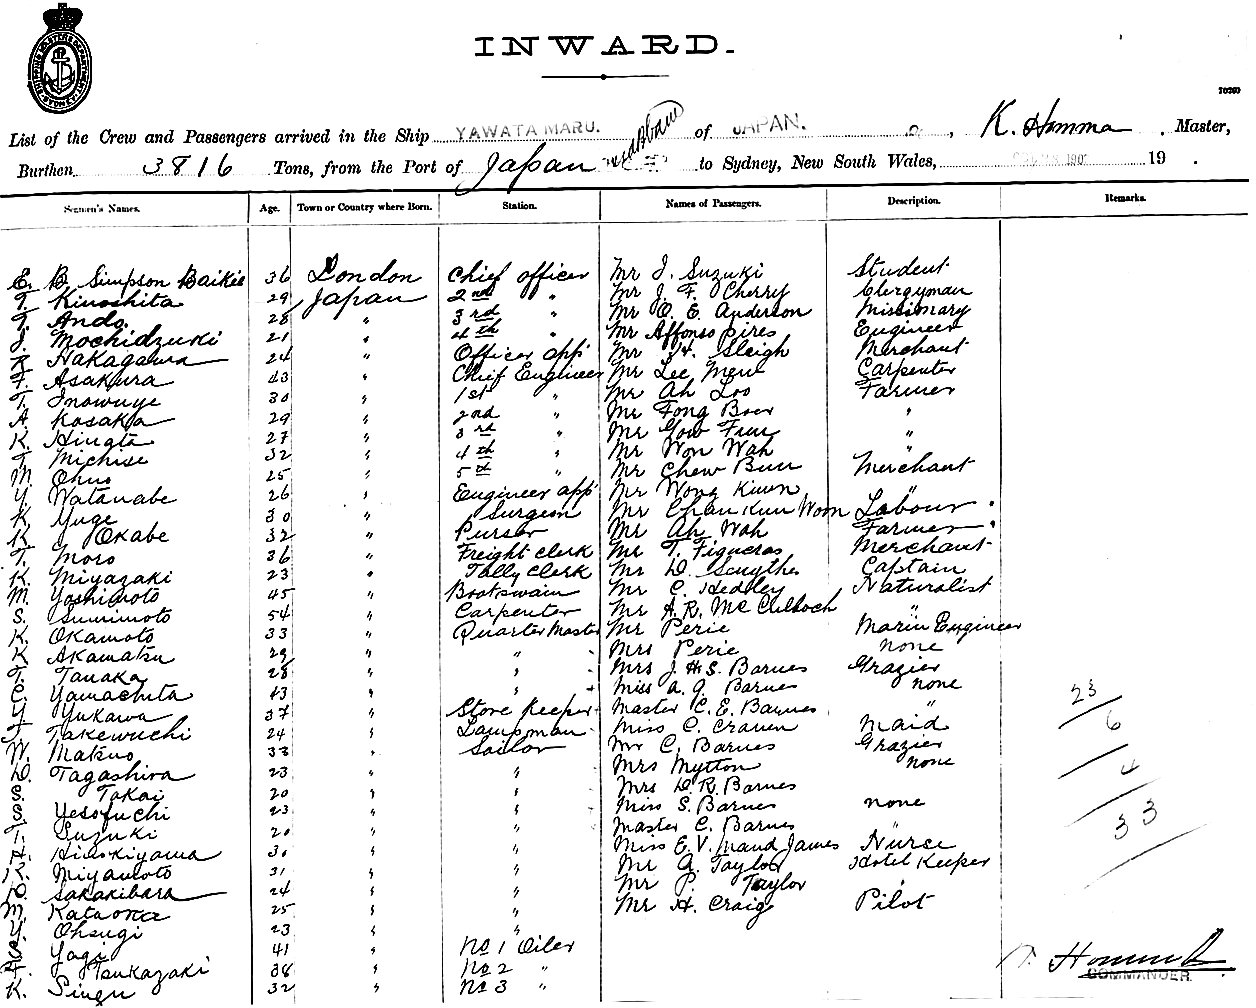 INWARD.
List of the Crew and Passengers arrived in the Ship YAWATA MARU. of JAPAN. , K. Homma , Master,
Burthen 3816 Tons, from the Port of Japan to Sydney, New South Wales, 190 19 .
Seamen's Names. Age. Town or Country where Born. Station. Names of Passengers. Description. Remarks.
E. B. Simpson Baikie 36 London Chief officer Mr J. Suzuki Student
T. Kinoshita 29 Japan 2nd " Mr J. F. Cherry Clergyman
T. Ando 28 " 3rd " Mr O. E. Anderson Missionary
J. Mochidzuki 21 " 4th " Mr Affonso Pires Engineer
Z. Nakagawa 24 " Officer app Mr H. Sleigh Merchant
F. Asakura 43 " Chief Engineer Mr Lee Mew Carpenter
T. Inowuye 30 " 1st " Mr Ah Loo Farmer
A. Kosaka 29 " 2nd " Mr Fong Boer "
K. Hingta 27 " 3rd " Mr Gow Fun "
T. Michise 32 " 4th " Mr Won Wah
M. Ohno 25 " 5th " Mr Chew Bun Merchant
Y. Watanabe 26 " Engineer app Mr Wong Kiwn "
K. Yuge 30 " Surgeon Mr Chan Kun Woon Labour
K. Okabe 32 " Purser Mr Ah Wah Farmer
T. Moro 36 " Freight clerk Mr T. Figueras Merchant
K. Miyazaki 23 " Tally clerk Mr D. Smythe Captain
M. Yoshimoto 45 " Boatswain Mr C. Hedley Naturalist
S. Sumimoto 54 " Carpenter Mr A. R. McCulloch "
K. Okamoto 33 " Quarter Master Mr Perie Marin Engineer
K. Akamatsu 29 " " Mrs Perie none
T. Tanaka 28 " " Mrs J. H. S. Barnes Grazier
C. Yamachita 43 " " Miss A. J. Barnes none
Y. Yukawa 37 " Store Keeper Master C. E. Barnes "
J. Takewuchi 24 " Lampman Miss C. Craven Maid
W. Matsuo 33 " Sailor Mr C. Barnes Grazier
D. Tagashira 23 " " Mrs Mytton none
S. Takai 20 " " Mrs D. R. Barnes
S. Yesofuchi 23 " " Miss S. Barnes none
T. Suzuki 20 " " Master C. Barnes "
H. Hirokiyama 31 " " Miss E. V. Maud James Nurse
K. Miyamoto 31 " " Mr A. Taylor Hotel Keeper
D. Sakakibara 24 " " Mr P. Taylor "
M. Kataoka 25 " " Mr H. Craig Pilot
Y. Ohsugi 23 " "
S. Yagi 41 " No 1 Oiler
F. Tsukazaki 38 " No 2 "
K. Singu 32 " No 3 "
23
6
4
33
K. Homma
COMMANDER.